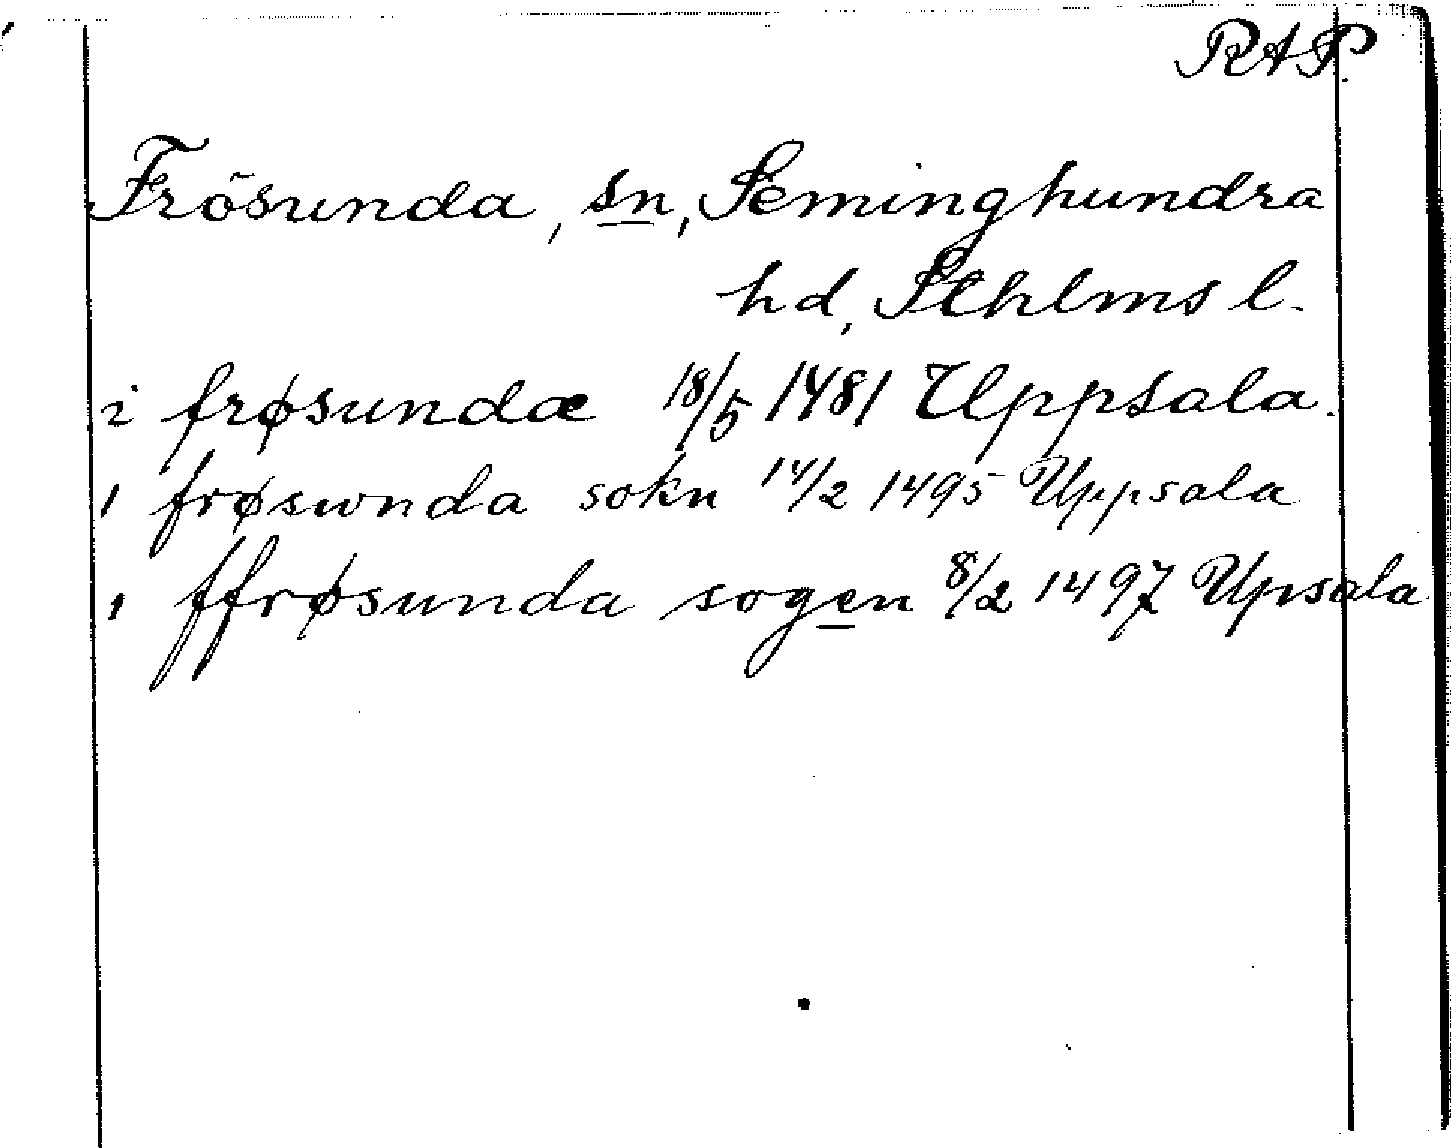 RAP.
Frösunda, sn, Seminghundra
hd, Sthlms l.
i frøsundæ 18/5 1481 Uppsala.
i frøswnda sokn 14/2 1495 Uppsala
i ffrøsunda sogen 8/2 1497 Upsala